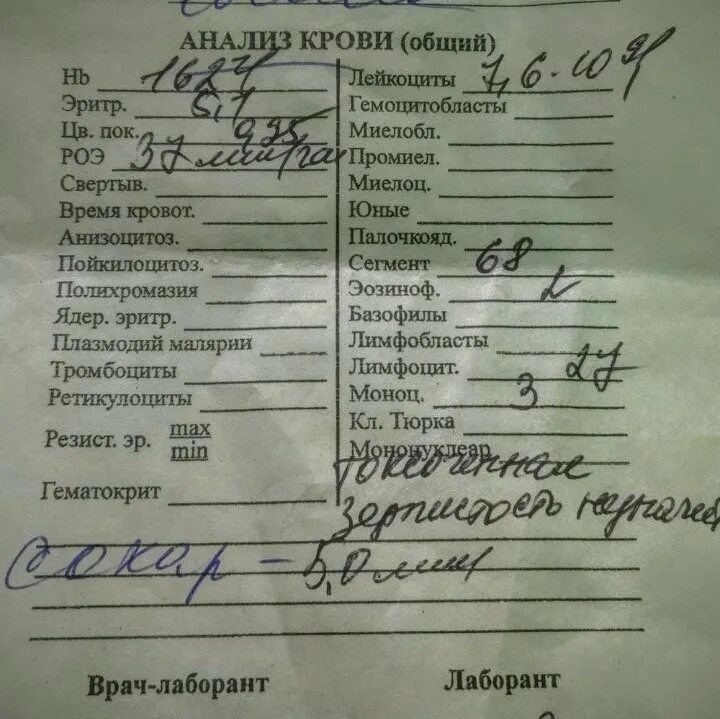 АНАЛИЗ КРОВИ (общий)
Hb 162 г/л
Эритр. 5,1
Цв. пок. 0,95
РОЭ 37 мм/час
Свертыв.
Время кровот.
Анизоцитоз.
Пойкилоцитоз.
Полихромазия
Ядер. эритр.
Плазмодий малярии
Тромбоциты
Ретикулоциты
Резист. эр. max
min
Гематокрит
Лейкоциты 7,6·10
Гемоцитобласты
Миелобл.
Промиел.
Миелоц.
Юные
Палочкояд.
Сегмент 68
Эозиноф. 2
Базофилы
Лимфобласты
Лимфоцит. 27
Моноц. 3
Кл. Тюрка
Мононуклеар
токсогенная
зернистость
сахар – 5,0
Врач-лаборант
Лаборант